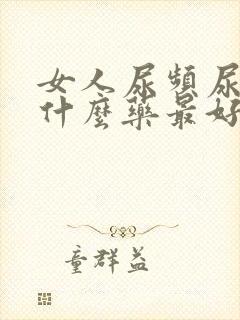 女人尿頻尿
什麼藥最好
童群益